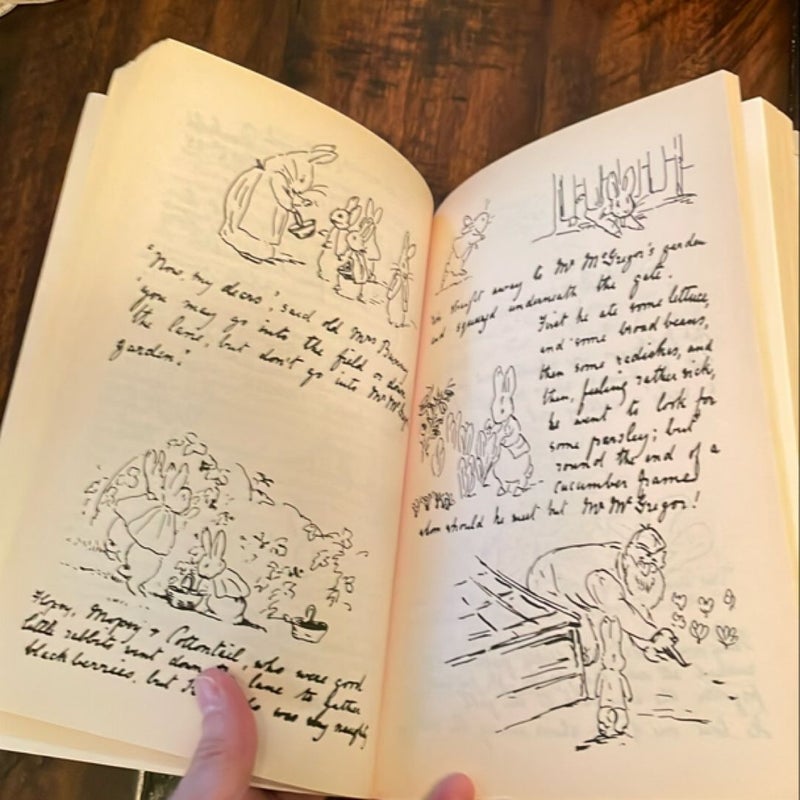 "Now, my dears", said old Mrs Bunny
"you may go into the field or down
the lane, but don't go into Mr McGregor's
garden."
Flopsy, Mopsy & Cottontail, who were good
little rabbits went down the lane to gather
blackberries, but Peter, who was very naughty
ran straight away to Mr McGregor's garden
and squeezed underneath the gate.
First he ate some lettuce,
and some broad beans,
then some radishes, and
then, feeling rather sick,
he went to look for
some parsley; but
round the end of a
cucumber frame
whom should he meet but Mr McGregor!